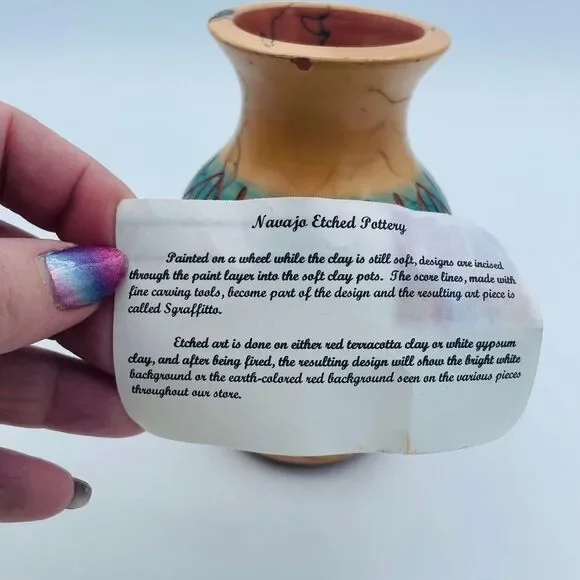 Navajo Etched Pottery
Painted on a wheel while the clay is still soft, designs are incised
through the paint layer into the soft clay pots. The score lines, made with
fine carving tools, become part of the design and the resulting art piece is
called Sgraffitto.
Etched art is done on either red terracotta clay or white gypsum
clay, and after being fired, the resulting design will show the bright white
background or the earth-colored red background seen on the various pieces
throughout our store.